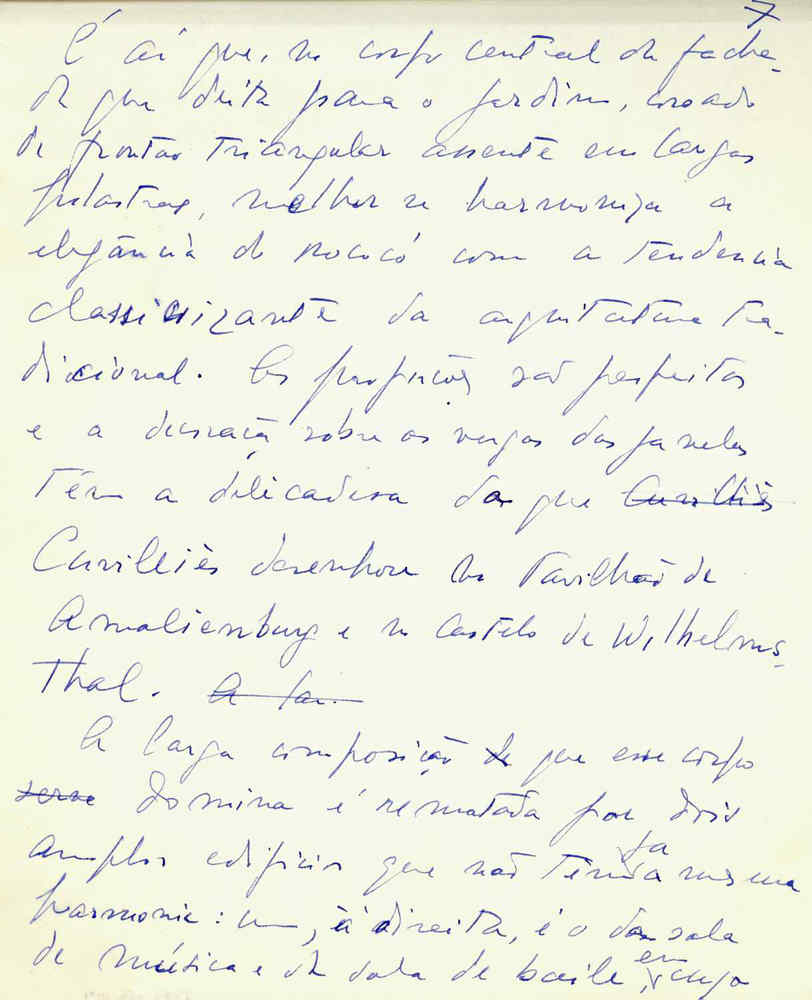 7
É aí que, no corpo central da facha-
da que deita para o jardim, coroado
de frontão triangular assente em largas
pilastras, melhor se harmoniza a
elegância do rococó com a tendencia
classicizante da arquitectura tra-
dicional. As proporções são perfeitas
e a decoração sobre as vergas das janelas
têm a delicadesa da que Cuvilliès
Cuvilliès desenhou no Pavilhão de
Amalienburg e no Castelo de Wilhelms-
Thal. A
A larga composição que esse corpo
serve domina é rematada por dois
amplos edificios que não têm já a mesma
harmonia: um, à direita, é o da sala
de música e da sala de baile em cujo